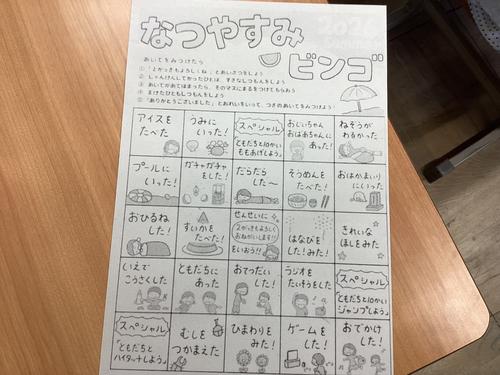 なつやすみ
ビンゴ
あいてをみつけたら
① 「2がっきもよろしくね」とあいさつをしよう
② じゃんけんしてかったひとは、すきなしつもんをしよう
③ あいてがあてはまったら、そのマスにまるをつけてもらおう
④ まけたひともしつもんをしよう
⑤ 「ありがとうございました」とおれいをいって、つぎのあいてをみつけよう
アイスを
たべた
うみに
いった!
スペシャル
「ともだちと10かい
ももあげしよう」
おじいちゃん
おばあちゃんに
あった!
ねぞうが
わるかった
プールに
いった!
ガチャガチャ
をした!
だらだら
した〜
そうめんを
たべた!
おはかまいり
にいった
おひるね
した!
すいかを
たべた!
せんせいに
2がっきもよろしく
おねがいします!!
をいおう!!
はなびを
した!みた!
きれいな
ほしをみた
いえで
こうさくした
ともだちに
あった
おてつだい
した!
ラジオを
たいそうをした
スペシャル
「ともだちと10かい
ジャンプしよう」
スペシャル
「ともだちと
ハイタッチしよう」
むしを
つかまえた
ひまわりを
みた!
ゲームを
した!
おでかけ
した!